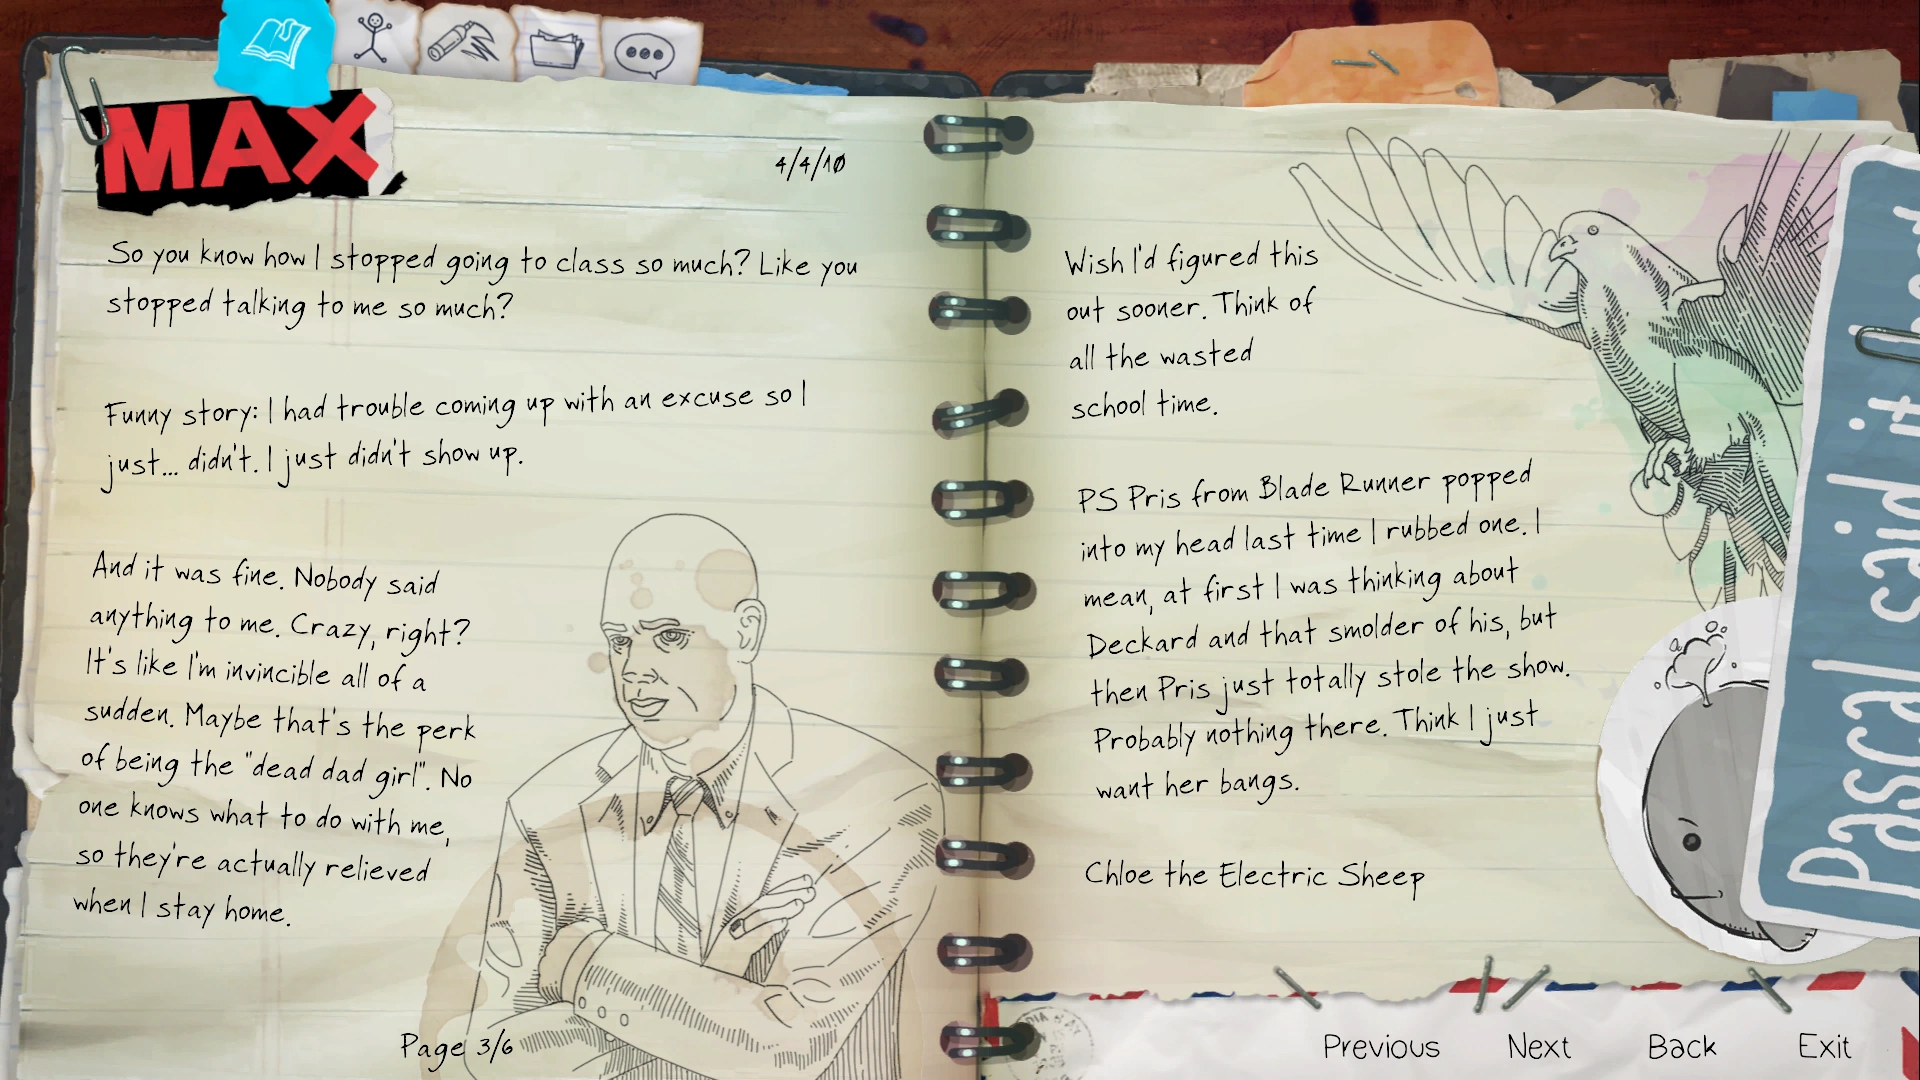 MAX
4/4/10
So you know how I stopped going to class so much? Like you
stopped talking to me so much?
Funny story: I had trouble coming up with an excuse so I
just... didn't. I just didn't show up.
And it was fine. Nobody said
anything to me. Crazy, right?
It's like I'm invincible all of a
sudden. Maybe that's the perk
of being the "dead dad girl". No
one knows what to do with me,
so they're actually relieved
when I stay home.
Page 3/6
Wish I'd figured this
out sooner. Think of
all the wasted
school time.
PS Pris from Blade Runner popped
into my head last time I rubbed one. I
mean, at first I was thinking about
Deckard and that smolder of his, but
then Pris just totally stole the show.
Probably nothing there. Think I just
want her bangs.
Chloe the Electric Sheep
Pascal said it
Previous Next Back Exit